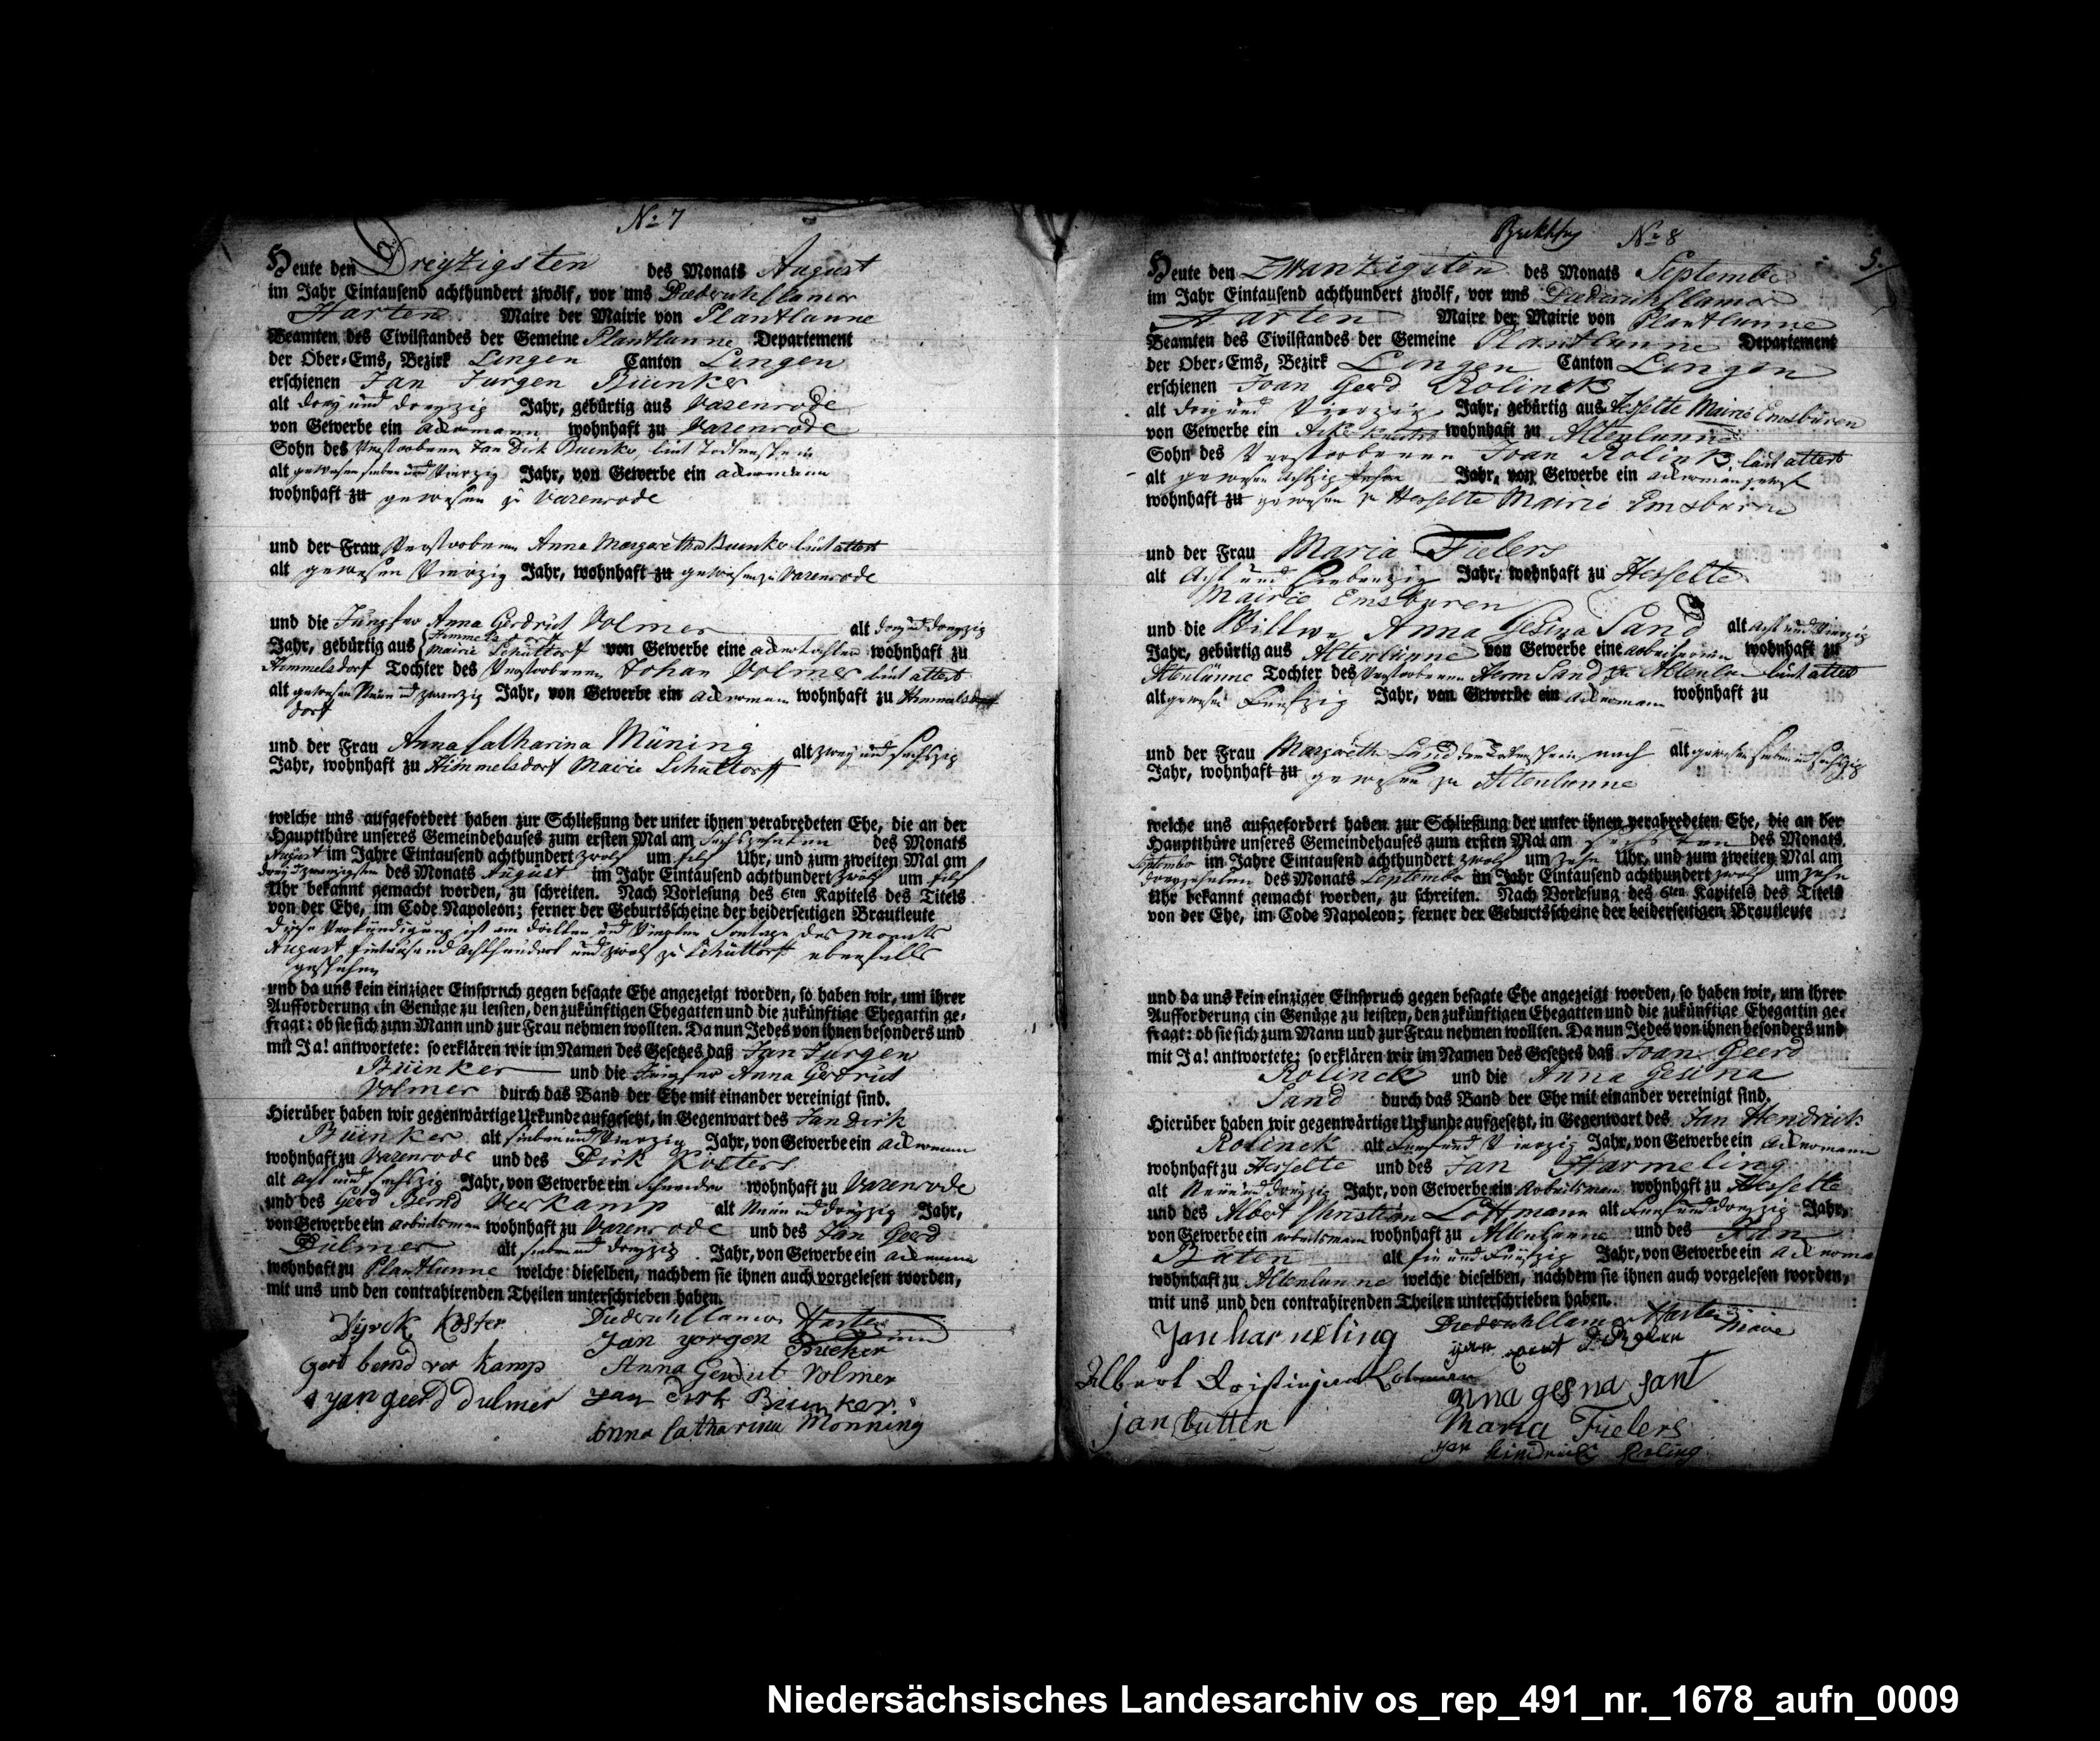 No 7
Heute den Dreyzigsten des Monats August
im Jahr Eintausend achthundert zwölf, vor uns
Harten Maire der Mairie von Plantlunne
Beamten des Civilstandes der Gemeine Plantlunne Departement
der Ober-Ems, Bezirk Lingen Canton Lingen
erschienen Jan Jurgen Büinker
alt drey und dreyzig Jahr, gebürtig aus Varenrode
von Gewerbe ein ackermann wohnhaft zu Varenrode
Sohn des Verstorbenen Jan Dirk Buenker, laut
alt gewesen sieben und Vierzig Jahr, von Gewerbe ein ackermann
wohnhaft zu gewesen zu Varenrode
und der Frau Verstorbenen Anna Margaretha Buenker laut attest
alt gewesen Vierzig Jahr, wohnhaft zu gewesen zu Varenrode
und die Jungfer Anna Gerdrut Volmer alt drey und dreyzig
Jahr, gebürtig aus Himmelsdorf Mairie Schüttorf von Gewerbe eine wohnhaft zu
Himmelsdorf Tochter des Verstorbenen Johan Volmer laut attest
alt gewesen Neun und zwanzig Jahr, von Gewerbe ein ackermann wohnhaft zu Himmelsdorf
dorf
und der Frau Anna Catharina Müning alt zwey und sechszig
Jahr, wohnhaft zu Himmelsdorf Mairie Schüttorff
welche uns aufgefordert haben zur Schließung der unter ihnen verabredeten Ehe, die an der
Hauptthüre unseres Gemeindehauses zum ersten Mal am sechszehnten des Monats
August im Jahre Eintausend achthundert zwölf um Uhr, und zum zweiten Mal am
drey und zwanzigsten des Monats August im Jahr Eintausend achthundert zwölf um
Uhr bekannt gemacht worden, zu schreiten. Nach Vorlesung des 6ten Kapitels des Titels
von der Ehe, im Code Napoleon; ferner der Geburtsscheine der beiderseitigen Brautleute
diese Verkündigung ist am dritten und Vierten Sontage des monats
August Eintausend achthundert und zwölf zu Schüttorff ebenfalls
geschehen
und da uns kein einziger Einspruch gegen besagte Ehe angezeigt worden, so haben wir, um ihrer
Aufforderung ein Genüge zu leisten, den zukünftigen Ehegatten und die zukünftige Ehegattin ge-
fragt: ob sie sich zum Mann und zur Frau nehmen wollten. Da nun Jedes von ihnen besonders und
mit Ja! antwortete: so erklären wir im Namen des Gesetzes daß Jan Jurgen
Büinker und die Jungfer Anna Gerdrut
Volmer durch das Band der Ehe mit einander vereinigt sind.
Hierüber haben wir gegenwärtige Urkunde aufgesetzt, in Gegenwart des Jan Dirk
Büinker alt sieben und Vierzig Jahr, von Gewerbe ein ackermann
wohnhaft zu Varenrode und des Dirk Kösters
alt acht und sechszig Jahr, von Gewerbe ein Schneider wohnhaft zu Varenrode
und des Gerd Bernd Verkamp alt Neun und dreyzig Jahr,
von Gewerbe ein arbeitsman wohnhaft zu Varenrode und des Jan Geerd
Dülmer alt sieben und dreyzig Jahr, von Gewerbe ein ackermann
wohnhaft zu Plantlunne welche dieselben, nachdem sie ihnen auch vorgelesen worden,
mit uns und den contrahirenden Theilen unterschrieben haben.
Dyrck Köster Harten
Jan yorgen Bücker
gerd bernd ver kamp Anna Gerdrut Volmer
yan geerd dulmer yan dirk Büinker
Anna Catharina Monning
No 8
5
Heute den Zwanzigsten des Monats September
im Jahr Eintausend achthundert zwölf, vor uns
Harten Maire der Mairie von Plantlunne
Beamten des Civilstandes der Gemeine Plantlunne Departement
der Ober-Ems, Bezirk Lingen Canton Lingen
erschienen Joan Geerd Rolinck
alt drey und Vierzig Jahr, gebürtig aus Hesselte Mairie Emsbüren
von Gewerbe ein wohnhaft zu Altenlunne
Sohn des Verstorbenen Joan Rolink, laut attest
alt gewesen Achtzig Jahr, von Gewerbe ein ackerman
wohnhaft zu gewesen zu Hesselte Mairie Emsburen
und der Frau Maria Fielers
alt Acht und Siebenzig Jahr, wohnhaft zu Hesselte
Mairie Emsburen
und die Wittwe Anna Gesina Sand alt acht und Vierzig
Jahr, gebürtig aus Altenlünne von Gewerbe eine arbeiterinn wohnhaft zu
Altenlünne Tochter des Verstorbenen Herm Sand laut attest
alt gewesen Funfzig Jahr, von Gewerbe ein ackermann wohnhaft zu
und der Frau Margareth Sand nach alt gewesen sieben und sechszig
Jahr, wohnhaft zu gewesen zu Altenlunne
welche uns aufgefordert haben zur Schließung der unter ihnen verabredeten Ehe, die an der
Hauptthüre unseres Gemeindehauses zum ersten Mal am sechsten des Monats
September im Jahre Eintausend achthundert zwölf um zehn Uhr, und zum zweiten Mal am
dreyzehnten des Monats September im Jahr Eintausend achthundert zwölf um zehn
Uhr bekannt gemacht worden, zu schreiten. Nach Vorlesung des 6ten Kapitels des Titels
von der Ehe, im Code Napoleon; ferner der Geburtsscheine der beiderseitigen Brautleute
und da uns kein einziger Einspruch gegen besagte Ehe angezeigt worden, so haben wir, um ihrer
Aufforderung ein Genüge zu leisten, den zukünftigen Ehegatten und die zukünftige Ehegattin ge-
fragt: ob sie sich zum Mann und zur Frau nehmen wollten. Da nun Jedes von ihnen besonders und
mit Ja! antwortete: so erklären wir im Namen des Gesetzes daß Joan Geerd
Rolinck und die Anna Gesina
Sand durch das Band der Ehe mit einander vereinigt sind.
Hierüber haben wir gegenwärtige Urkunde aufgesetzt, in Gegenwart des Jan Hendrick
Rolinck alt Funf und Vierzig Jahr, von Gewerbe ein ackermann
wohnhaft zu Hesselte und des Jan Harmeling
alt Neun und dreyzig Jahr, von Gewerbe ein Arbeitsman wohnhaft zu Hesselte
und des Albert Christian Lottmann alt Funf und dreyzig Jahr,
von Gewerbe ein arbeitsmann wohnhaft zu Altenlunne und des Jan
Büten alt Jahr, von Gewerbe ein ackerma
wohnhaft zu Altenlunne welche dieselben, nachdem sie ihnen auch vorgelesen worden,
mit uns und den contrahirenden Theilen unterschrieben haben.
Jan harmeling Harten Maire
Albert Kristiejan
anna gesina sant
jan butten Maria Fielers
yan hindrick Roling
Niedersächsisches Landesarchiv os_rep_491_nr._1678_aufn_0009